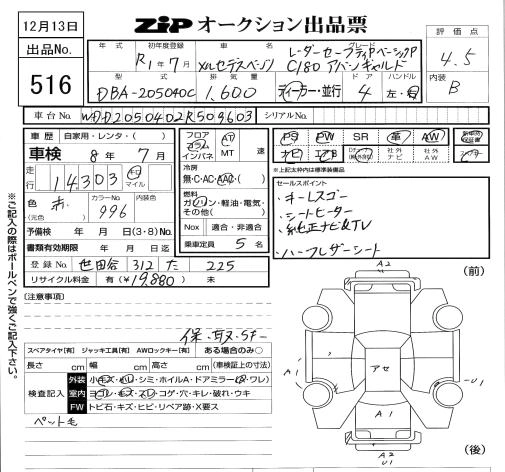 12月13日
ZiP オークション出品票
出品No. 516
年式 初年度登録 車名 グレード
R1年7月 メルセデスベンツ レーダーセーフティPベーシックP
C180 アバンギャルド
評価点 4.5
内装 B
型式 排気量 ドア ハンドル
DBA-205040C 1.600 ディーラー・並行 4 左・右
車台No. WDD2050402R509603 シリアルNo.
車歴 自家用・レンタ・( )
車検 8年7月
走行 14,303 km マイル
色 赤 (元色) カラーNo. 996 内装色
予備検 年 月 日(3・8)No.
書類有効期限 年 月 日迄
登録No. 世田谷 312 た 225
リサイクル料金 有(¥19,880) 未
フロア コラム インパネ AT MT 速
冷房 無・C・AC・AAC
燃料 ガソリン・軽油・電気・その他( )
Nox 適合・非適合
乗車定員 5名
PS PW SR 革 AW 新車時保証書
ナビ エアB 社外ナビ 社外AW
*上記太枠内は標準装備品
セールスポイント
・キーレスゴー
・シートヒーター
・純正ナビ&TV
・ハーフレザーシート
(注意事項)
保・取・SF-
スペアタイヤ[有] ジャッキ工具[有] AWロックキー[有] ある場合のみ○
長さ cm 幅 cm 高さ cm (車検証上の寸法)
検査記入
外装 小キズ・凹・シミ・ホイルA・ドアミラー(キズ・ワレ)
室内 ヨゴレ・キズ・スレ・コゲ・穴・キレ・破れ・ウキ
FW トビ石・キズ・ヒビ・リペア跡・X要ス
ペット毛
※ご記入の際はボールペンで強くご記入下さい。
(前)
A2
A1
アセ
U1
A1
A2
U1
(後)